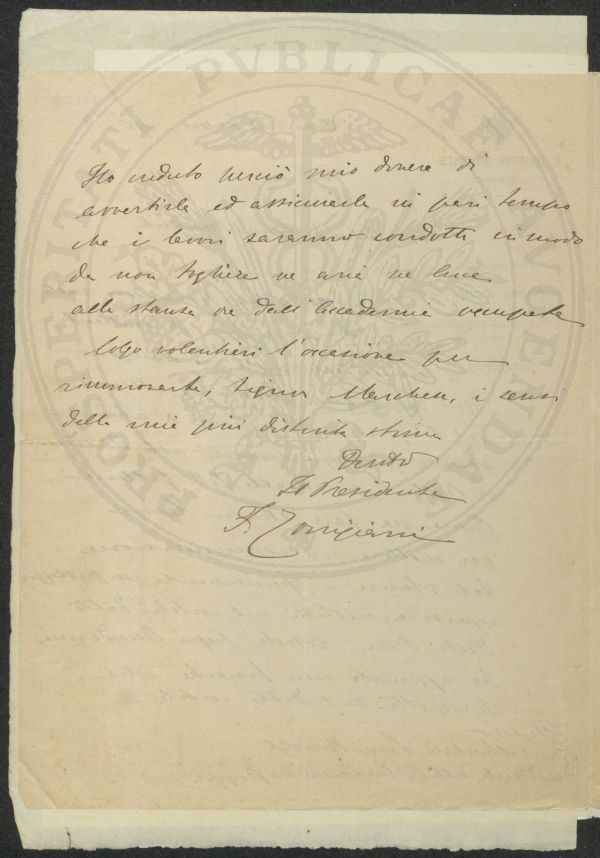 PROSPERITATI PVBLICAE AVGENDAE
Ho creduto perciò mio dovere di
avvertirla ed assicurarla in pari tempo
che i lavori saranno condotti in modo
da non togliere ne aria ne luce
alle stanze ora dall'Accademia occupate
Colgo volentieri l'occasione per
rinnovarle, Signor Marchese, i sensi
della mia più distinta stima
Devmo
Il Presidente
F. Torrigiani